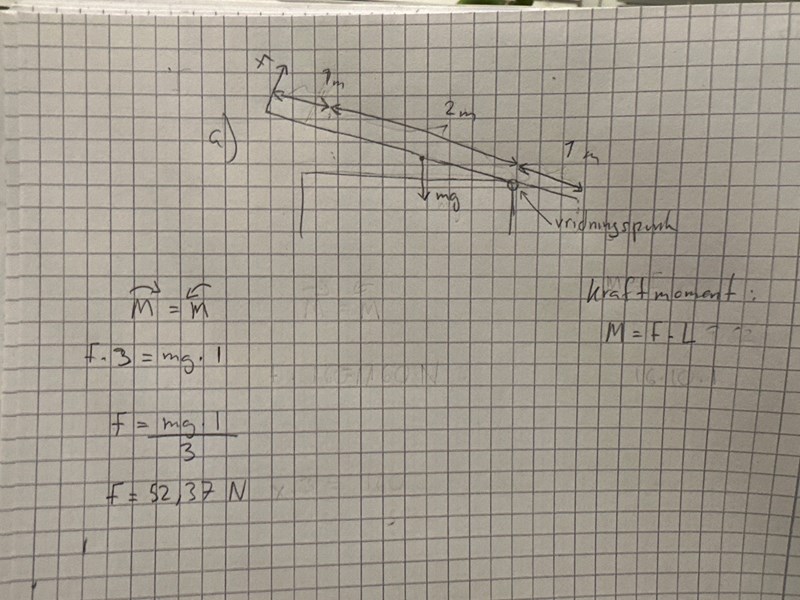 a)
x
1 m
2 m
1 m
mg
vridningspunkt
M = M
F · 3 = mg · 1
F = mg · 1
3
F = 52,37 N
kraftmoment:
M = F · L